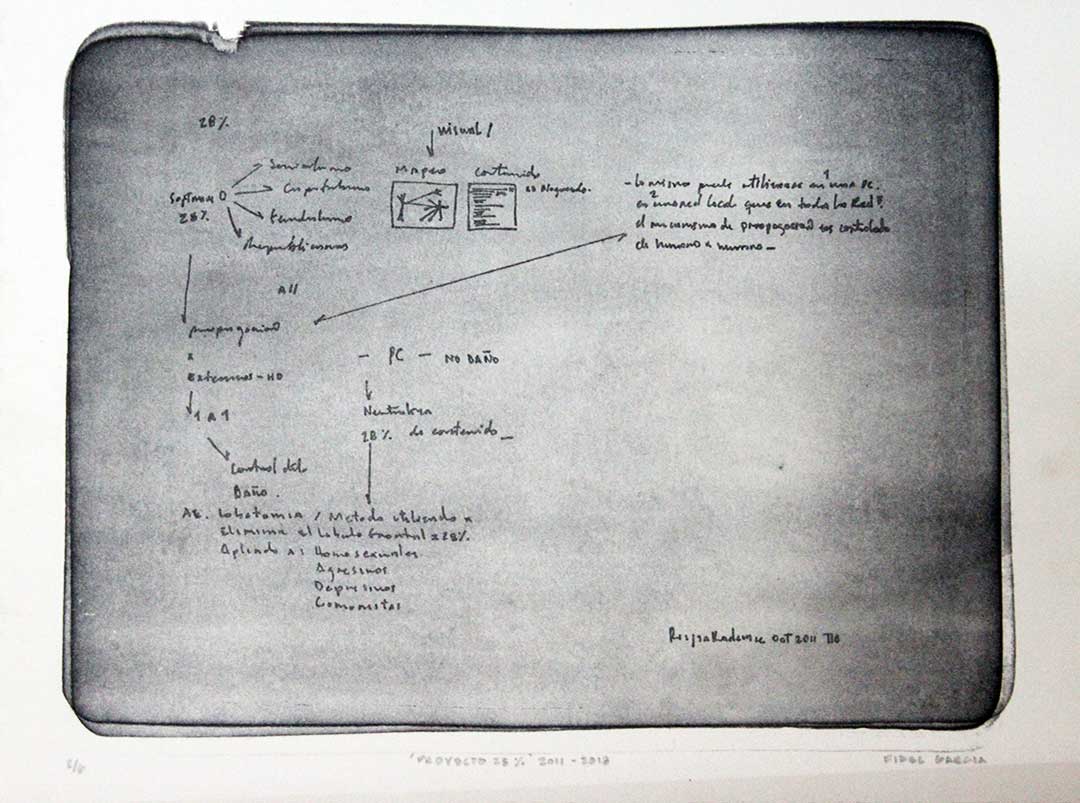 28%
visual /
Mapeo
contenido
es bloqueado.
Software
28%
Socialismo
Capitalismo
Feudalismo
Republicanos
All
- Lo mismo puede utilizarse en 1 una PC.
2 en una red local que en toda la Red 3.
el mecanismo de propagación es controlado
de humano a humano -
propagación
x
Externos - HD
1 A 1
Control del
Daño.
- PC - NO DAÑO
Neutraliza
28% de contenido -
Lobotomia / Metodo utilizando x
Elimina el Lobulo Frontal = 28%.
Aplicado a: Homosexuales
Agresivos
Depresivos
Comunistas
Oct 2011
"PROYECTO 28%" 2011 - 2013
FIDEL GARCIA